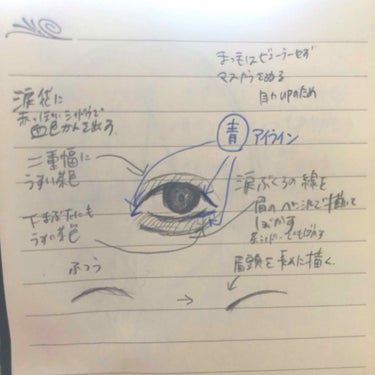 まつ毛はビューラーせず
マスカラをぬる
目力UPのため
涙袋に
赤っぽいシャドウで
血色かんを出す
青 アイライン
二重幅に
うすい茶色
涙ぶくろの線を
眉のペンシルで描いて
ぼかす
下まぶたにも
うすい茶色
ふつう
→
眉頭を長めに描く